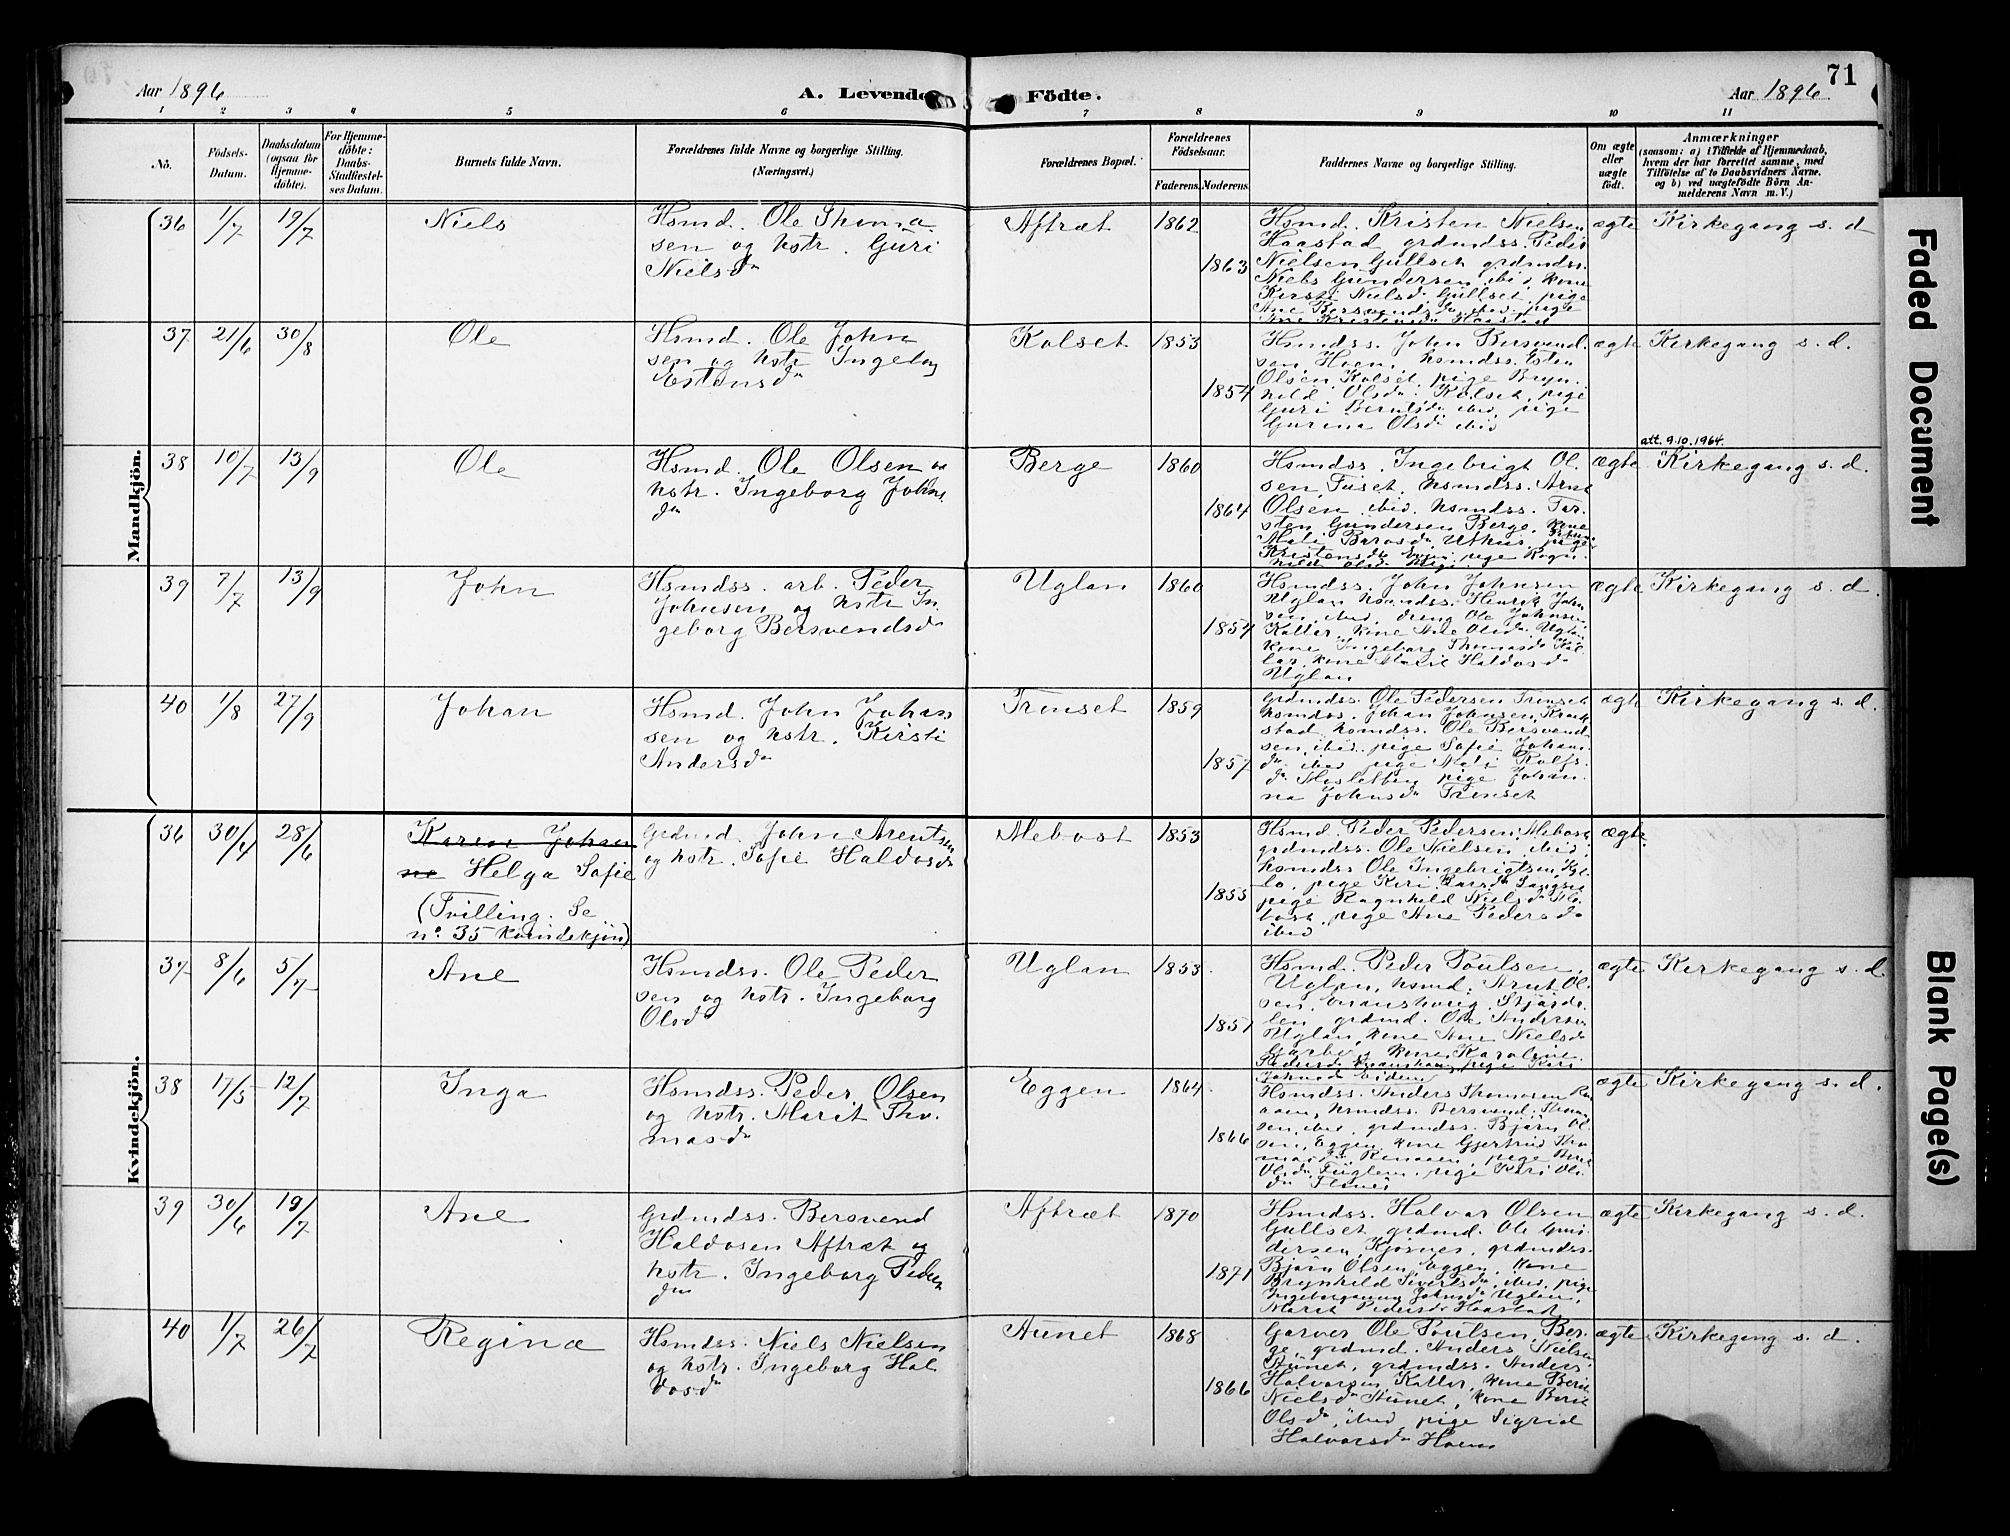 71
Aar 1896
A. Levende Födte.
Aar 1896
1 2 3 4 5 6 7 8 9 10 11
No.
Födsels-
Datum.
Daabsdatum
(ogsaa for
Hjemme-
döbte).
For Hjemme-
döbte:
Daabs-
Stadfæstel-
ses Datum.
Barnets fulde Navn.
Forældrenes fulde Navne og borgerlige Stilling.
(Næringsvei.)
Forældrenes Bopæl.
Forældrenes
Födselsaar.
Faderens.
Moderens.
Faddernes Navne og borgerlige Stilling.
Om ægte
eller
uægte
födt.
Anmærkninger
(saasom: a) i Tilfælde af Hjemmedaab,
hvem der har forrettet samme, med
Tilföielse af to Daabsvidners Navne.
og b) ved uægtefödte Börn An-
melderens Navn m. V.)
Mandkjön.
36 1/7 19/7 Niels
Hsmd. Ole Thoma
sen og hstr. Guri
Nielsda
Aftræt 1862 1863
Hsmd. Kristen Nielsen
Haastad grdmdss. Peder
Nielsen Gullset grdmdss.
Niels Gundersen ibid, kone
Kirsti Nielsda Gullset, pige
Ane Bersvendsda ibid, pige
Kristensda Haastad
ægte Kirkegang s. d
37 21/6 30/8 Ole
Hsmd. Ole John
sen og hstr. Ingeborg
Estensda
Kolset 1853 1854
Hsmdss. John Bersvend
sen, Hoen, hsmdss. Esten
Olsen Kolset, pige Bryn
hild Olsda Kolset, pige
Guri Berntsda ibid, pige
Gurina Olsda ibid
ægte Kirkegang s. d.
att. 9.10.1964.
38 10/7 13/9 Ole
Hsmd. Ole Olsen og
hstr. Ingeborg Johns
da
Berge 1860 1864
Hsmdss. Ingebrigt Ol
sen Fuset, hsmdss. Arnt
Olsen ibid, hsmdss. Tor
sten Gundersen Berge, kone
Mali Uthus, pige
Kristensda pige Ragn
hild Olsd
ægte Kirkegang s. d.
39 7/7 13/9 John
Hsmdss. arb. Peder
Johnsen og hstr In
geborg Bersvendsda
Uglan 1860 1854
Hsmdss. John Johnsen
Uglan hsmdss. Henrik John
sen, ibid, dreng Ole Johnsen
Kallar, kone Ane Olsda Uglan
kone Ingeborg Thomasda Kal
lar, kone Marit Haldosda
Uglan
ægte Kirkegang s. d.
40 1/8 27/9 Johan
Hsmd. John Johan
sen og hstr. Kirsti
Andersda
Tronset 1859 1857
Grdmdss. Ole Pedersen Tronset
hsmdss. Johan Johnsen Krak
stad hsmdss. Ole Bersvend
sen, ibid, pige Sofie Johans
da ibid pige Mali Rolfs
da pige Johan
na Johnsda Tronset
ægte Kirkegang s. d.
Kvindekjön.
36 30/4 28/6 Karen Johan
ne Helga Sofie
(Tvilling. Se
no. 35 kvindekjøn)
Grdmd. John Arentsen
og hstr. Sofie Haldosda
Mebost 1853 1855
Hsmd. Peder Pedersen, Mebost
grdmdss. Ole Nielsen ibid,
hsmdss Ole Ingebrigtsen,
pige Kari Larsda
pige Ragnhild Nielsda Me
bost, pige Ane Pedersda
ibid
ægte.
37 8/6 5/7 Ane
Hsmdss. Ole Peder
sen og hstr. Ingeborg
Olsda
Uglan 1853 1851
Hsmd. Peder Poulsen
Uglan, hsmd. Arnt Ol
sen, Stjørda
len grdmd. Ole Andersen
Uglan, kone Ane Nielsda
kone Karoline
Pedersda pige Kari
Johnsda
ægte Kirkegang s. d.
38 17/5 12/7 Inga
Hsmdss. Peder Olsen
og hstr. Marit Tho
masda
Eggen 1864 1866
Hsmdss. Anders Thomassen
hsmdss. Bersvend Thomas
sen, ibid, grdmdss. Bjørn Ol
sen, Eggen, kone Gjertrud Tho
masda pige Berit
Olsda Fuglem, pige Kari Ols
da
ægte Kirkegang s. d.
39 30/6 19/7 Ane
Grdmdss. Bersvend
Haldosen Aftræt og
hstr. Ingeborg Peders
da
Aftræt 1870 1871
Hsmdss. Halvar Olsen
Gullset, grdmd. Ole Gun
dersen, Kjøsnes, grdmdss.
Bjørn Olsen Eggen, kone
Brynhild Sivertsda, ibid, pige
Ingeborganna Johnsda Uglan,
Marit Pedersda Haastad
ægte Kirkegang s. d.
40 1/7 26/7 Regina
Hsmdss. Niels Nielsen
og hstr. Ingeborg Hal
dosda
Aunet 1868 1866
Garver Ole Poulsen, Ber
ge, grdmd. Anders Nielsen
Aunet, grdmdss. Anders
Halvorsen Kallar, kone Berit
Nielsda Aunet, kone Berit
Olsda, ibid, pige Sigrid
Halvarsda Hoem
ægte Kirkegang s. d.
Faded Document
Blank Page(s)